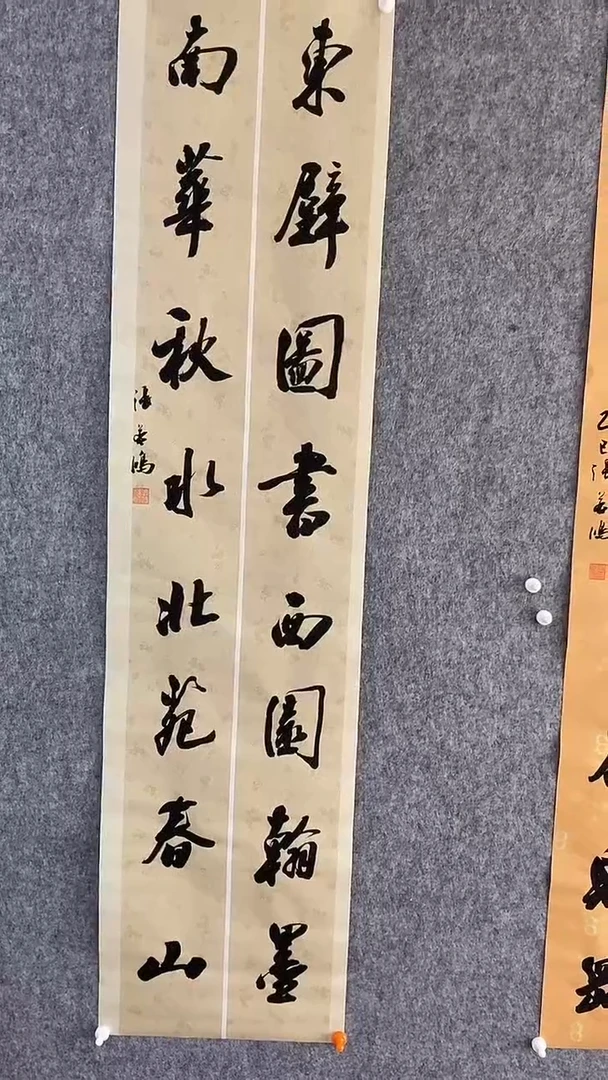 東壁圖書西園翰墨
南華秋水北苑春山
張若鴻
乙巳張若鴻